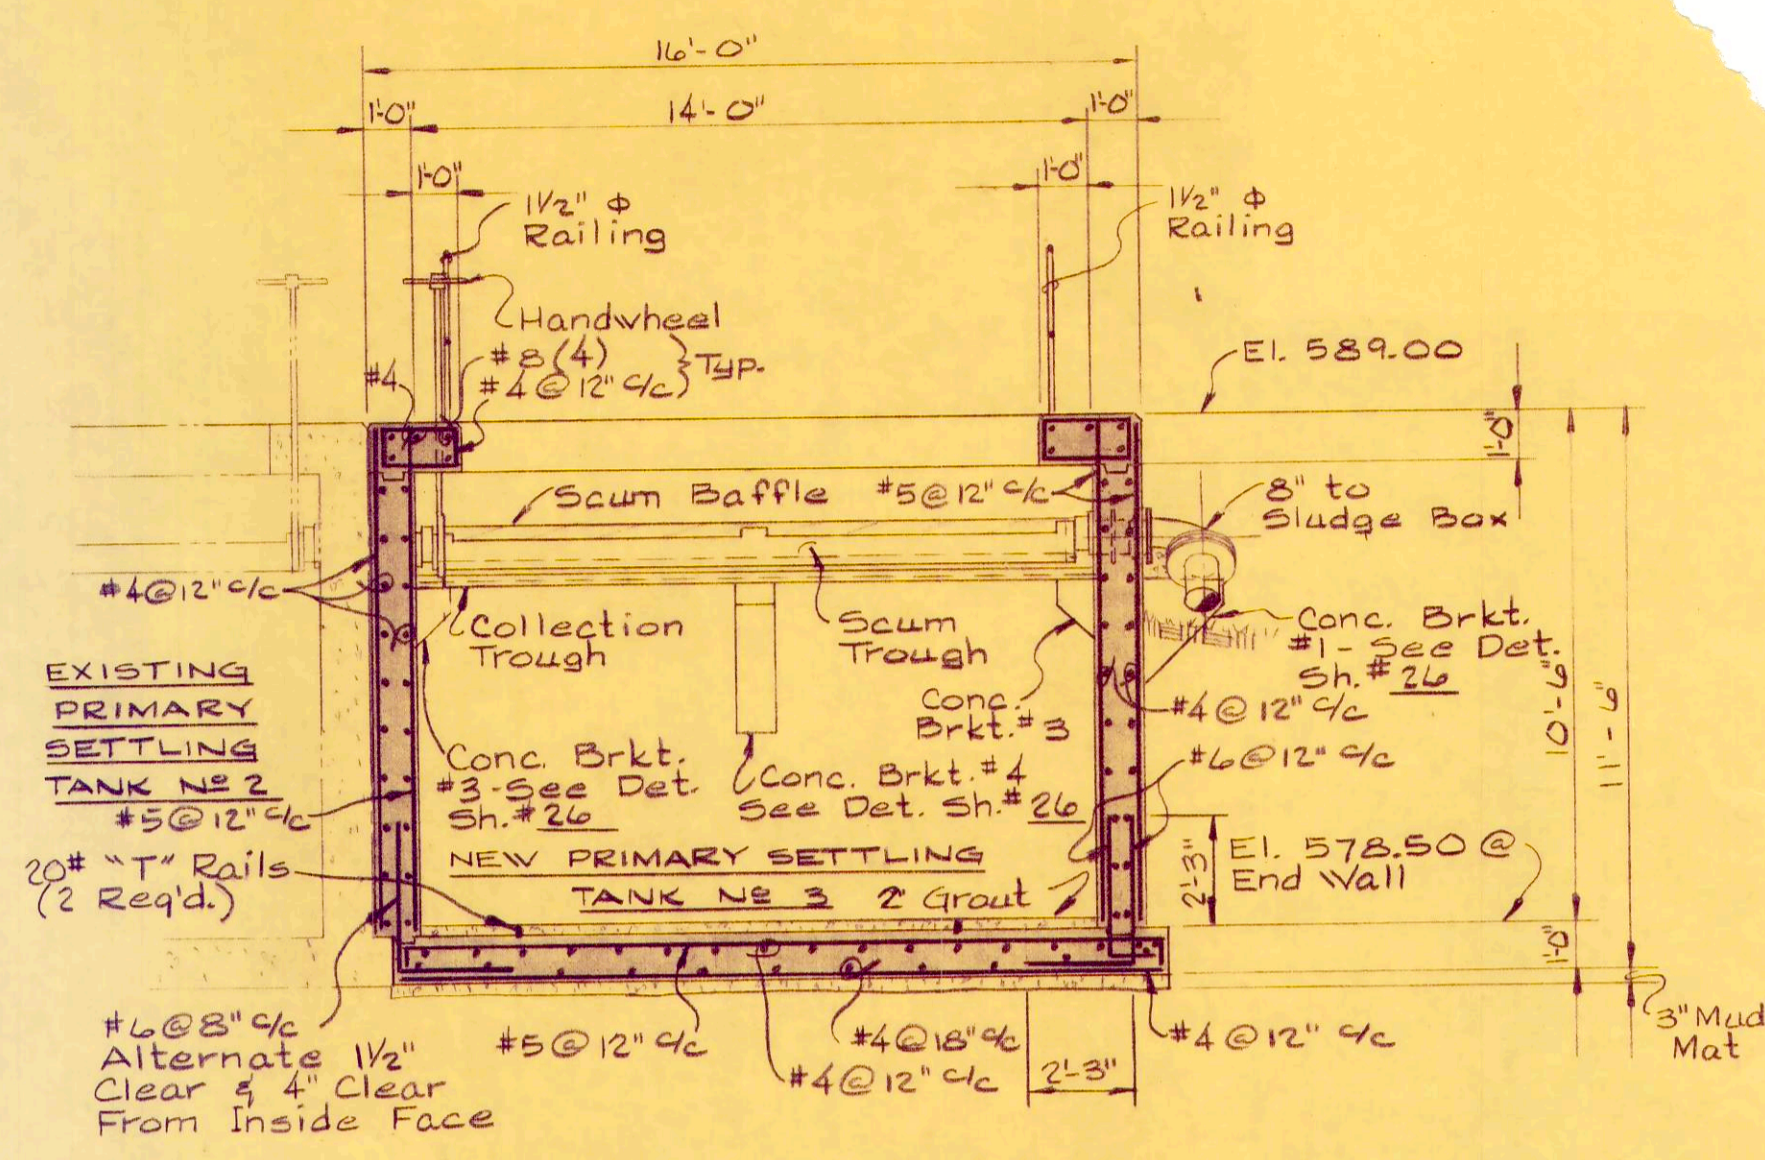 16'-0"
1'-0"
14'-0"
1'-0"
1'-0"
1'-0"
1½" Φ
Railing
1½" Φ
Railing
Handwheel
#8(4)
#4@12" c/c
} Typ.
#4
El. 589.00
1'-0"
Scum Baffle
#5@12" c/c
8" to
Sludge Box
#4@12" c/c
Collection
Trough
Scum
Trough
Conc. Brkt.
#1- See Det.
Sh.# 26
EXISTING
PRIMARY
SETTLING
TANK Nº 2
Conc.
Brkt.#3
#4@12" c/c
10'-6"
11'-6"
Conc. Brkt.
#3-See Det.
Sh.#26
Conc. Brkt.#4
See Det. Sh.#26
#6@12" c/c
#5@12" c/c
20# "T" Rails
(2 Req'd.)
NEW PRIMARY SETTLING
TANK Nº 3
2" Grout
2'-3"
El. 578.50 @
End Wall
1'-0"
#6@8" c/c
Alternate 1½"
Clear & 4" Clear
From Inside Face
#5@12" c/c
#4@18" c/c
#4@12" c/c
2'-3"
#4@12" c/c
3" Mud
Mat